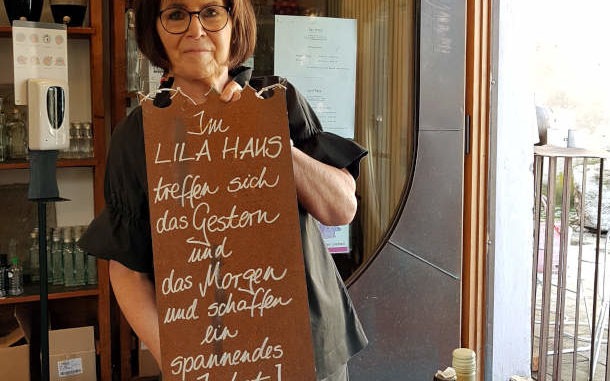 Im
LILA HAUS
treffen sich
das Gestern
und
das Morgen
und schaffen
ein
spannendes